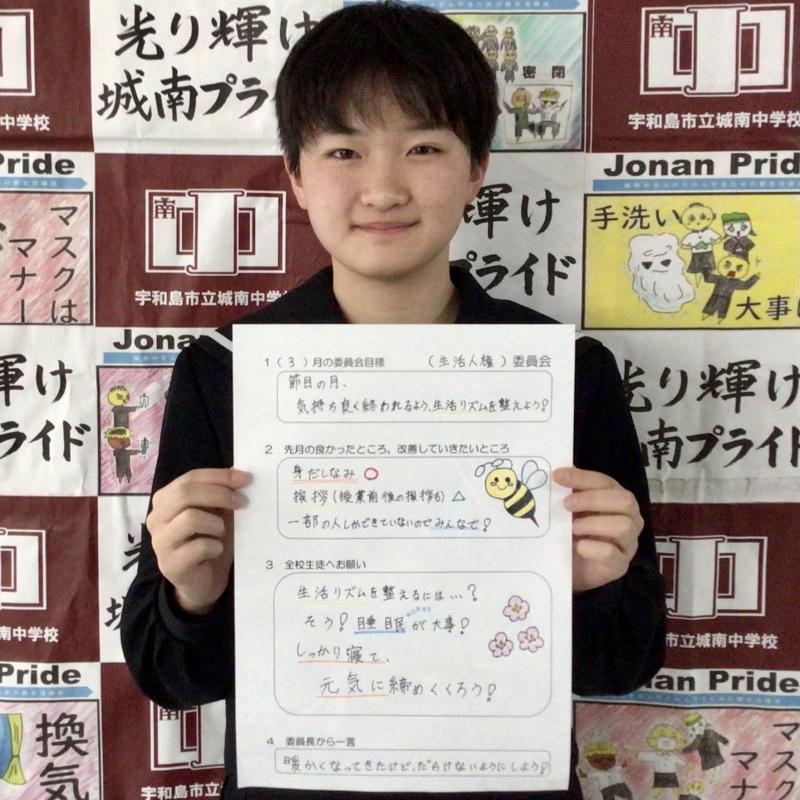 光り輝け
城南プライド
密閉
南
宇和島市立城南中学校
中学校
Pride
Jonan Pride
マスクは
マナー
南
宇和島市立城南中学校
輝け
プライド
手洗い
大事
Jonan
輝け
プライド
光り輝け
城南プライド
1 (3)月の委員会目標 (生活人権)委員会
節目の月、
気持ち良く終われるよう、生活リズムを整えよう!
2 先月の良かったところ、改善していきたいところ
身だしなみ ○
挨拶(授業前後の挨拶も) △
一部の人しかできていないのでみんなで!
3 全校生徒へお願い
生活リズムを整えるには…?
そう!睡眠が大事!
しっかり寝て、
元気に締めくくろう!
4 委員長から一言
暖かくなってきたけど、だらけないようにしよう!
中学校
光
城
宇和島市立城南中学校
Pride
換気
宇和島市立城南
Jonan Pride
マスク
マナ